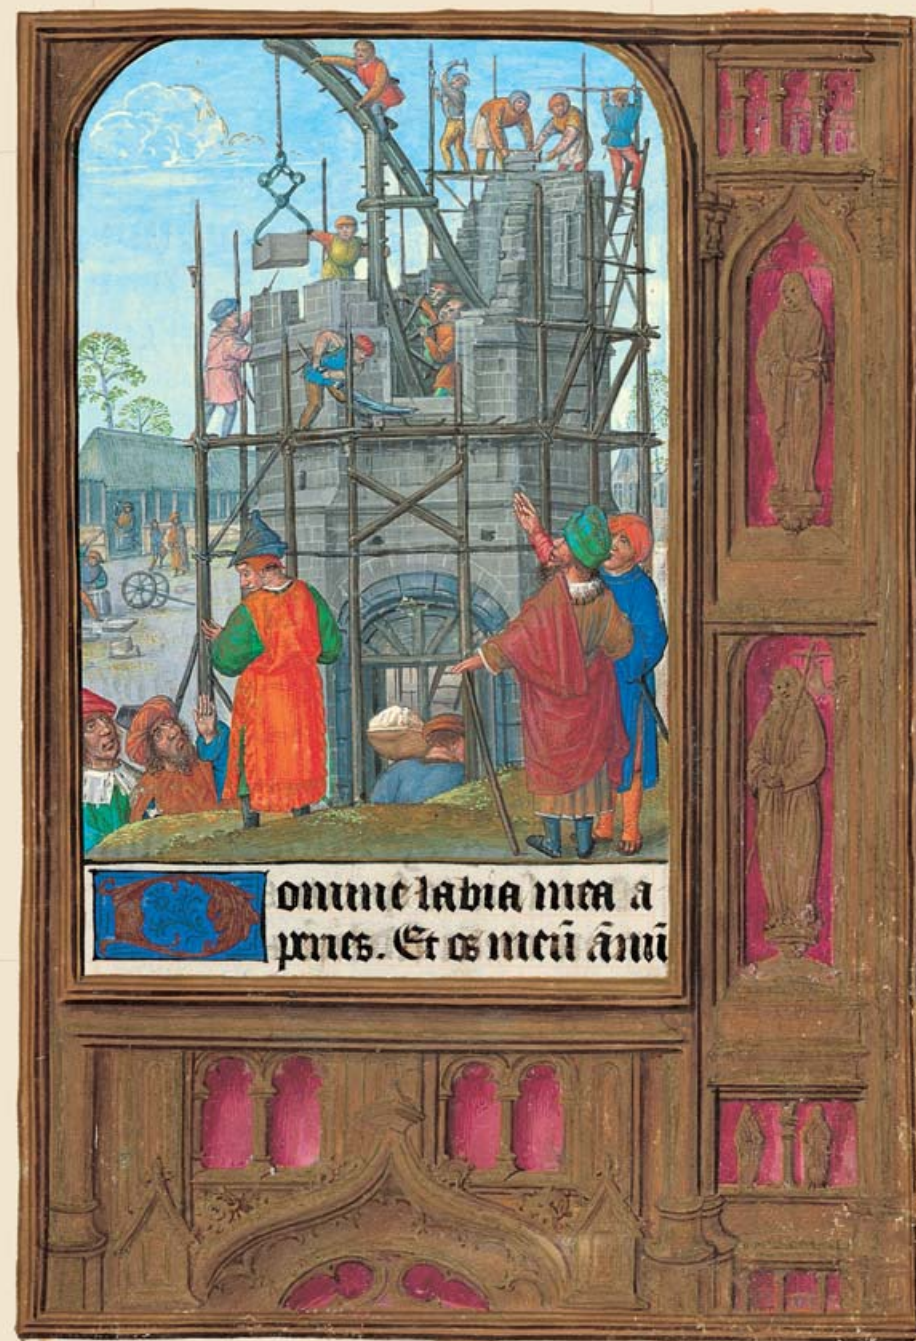 Domine labia mea a
peries. Et os meū ānūū